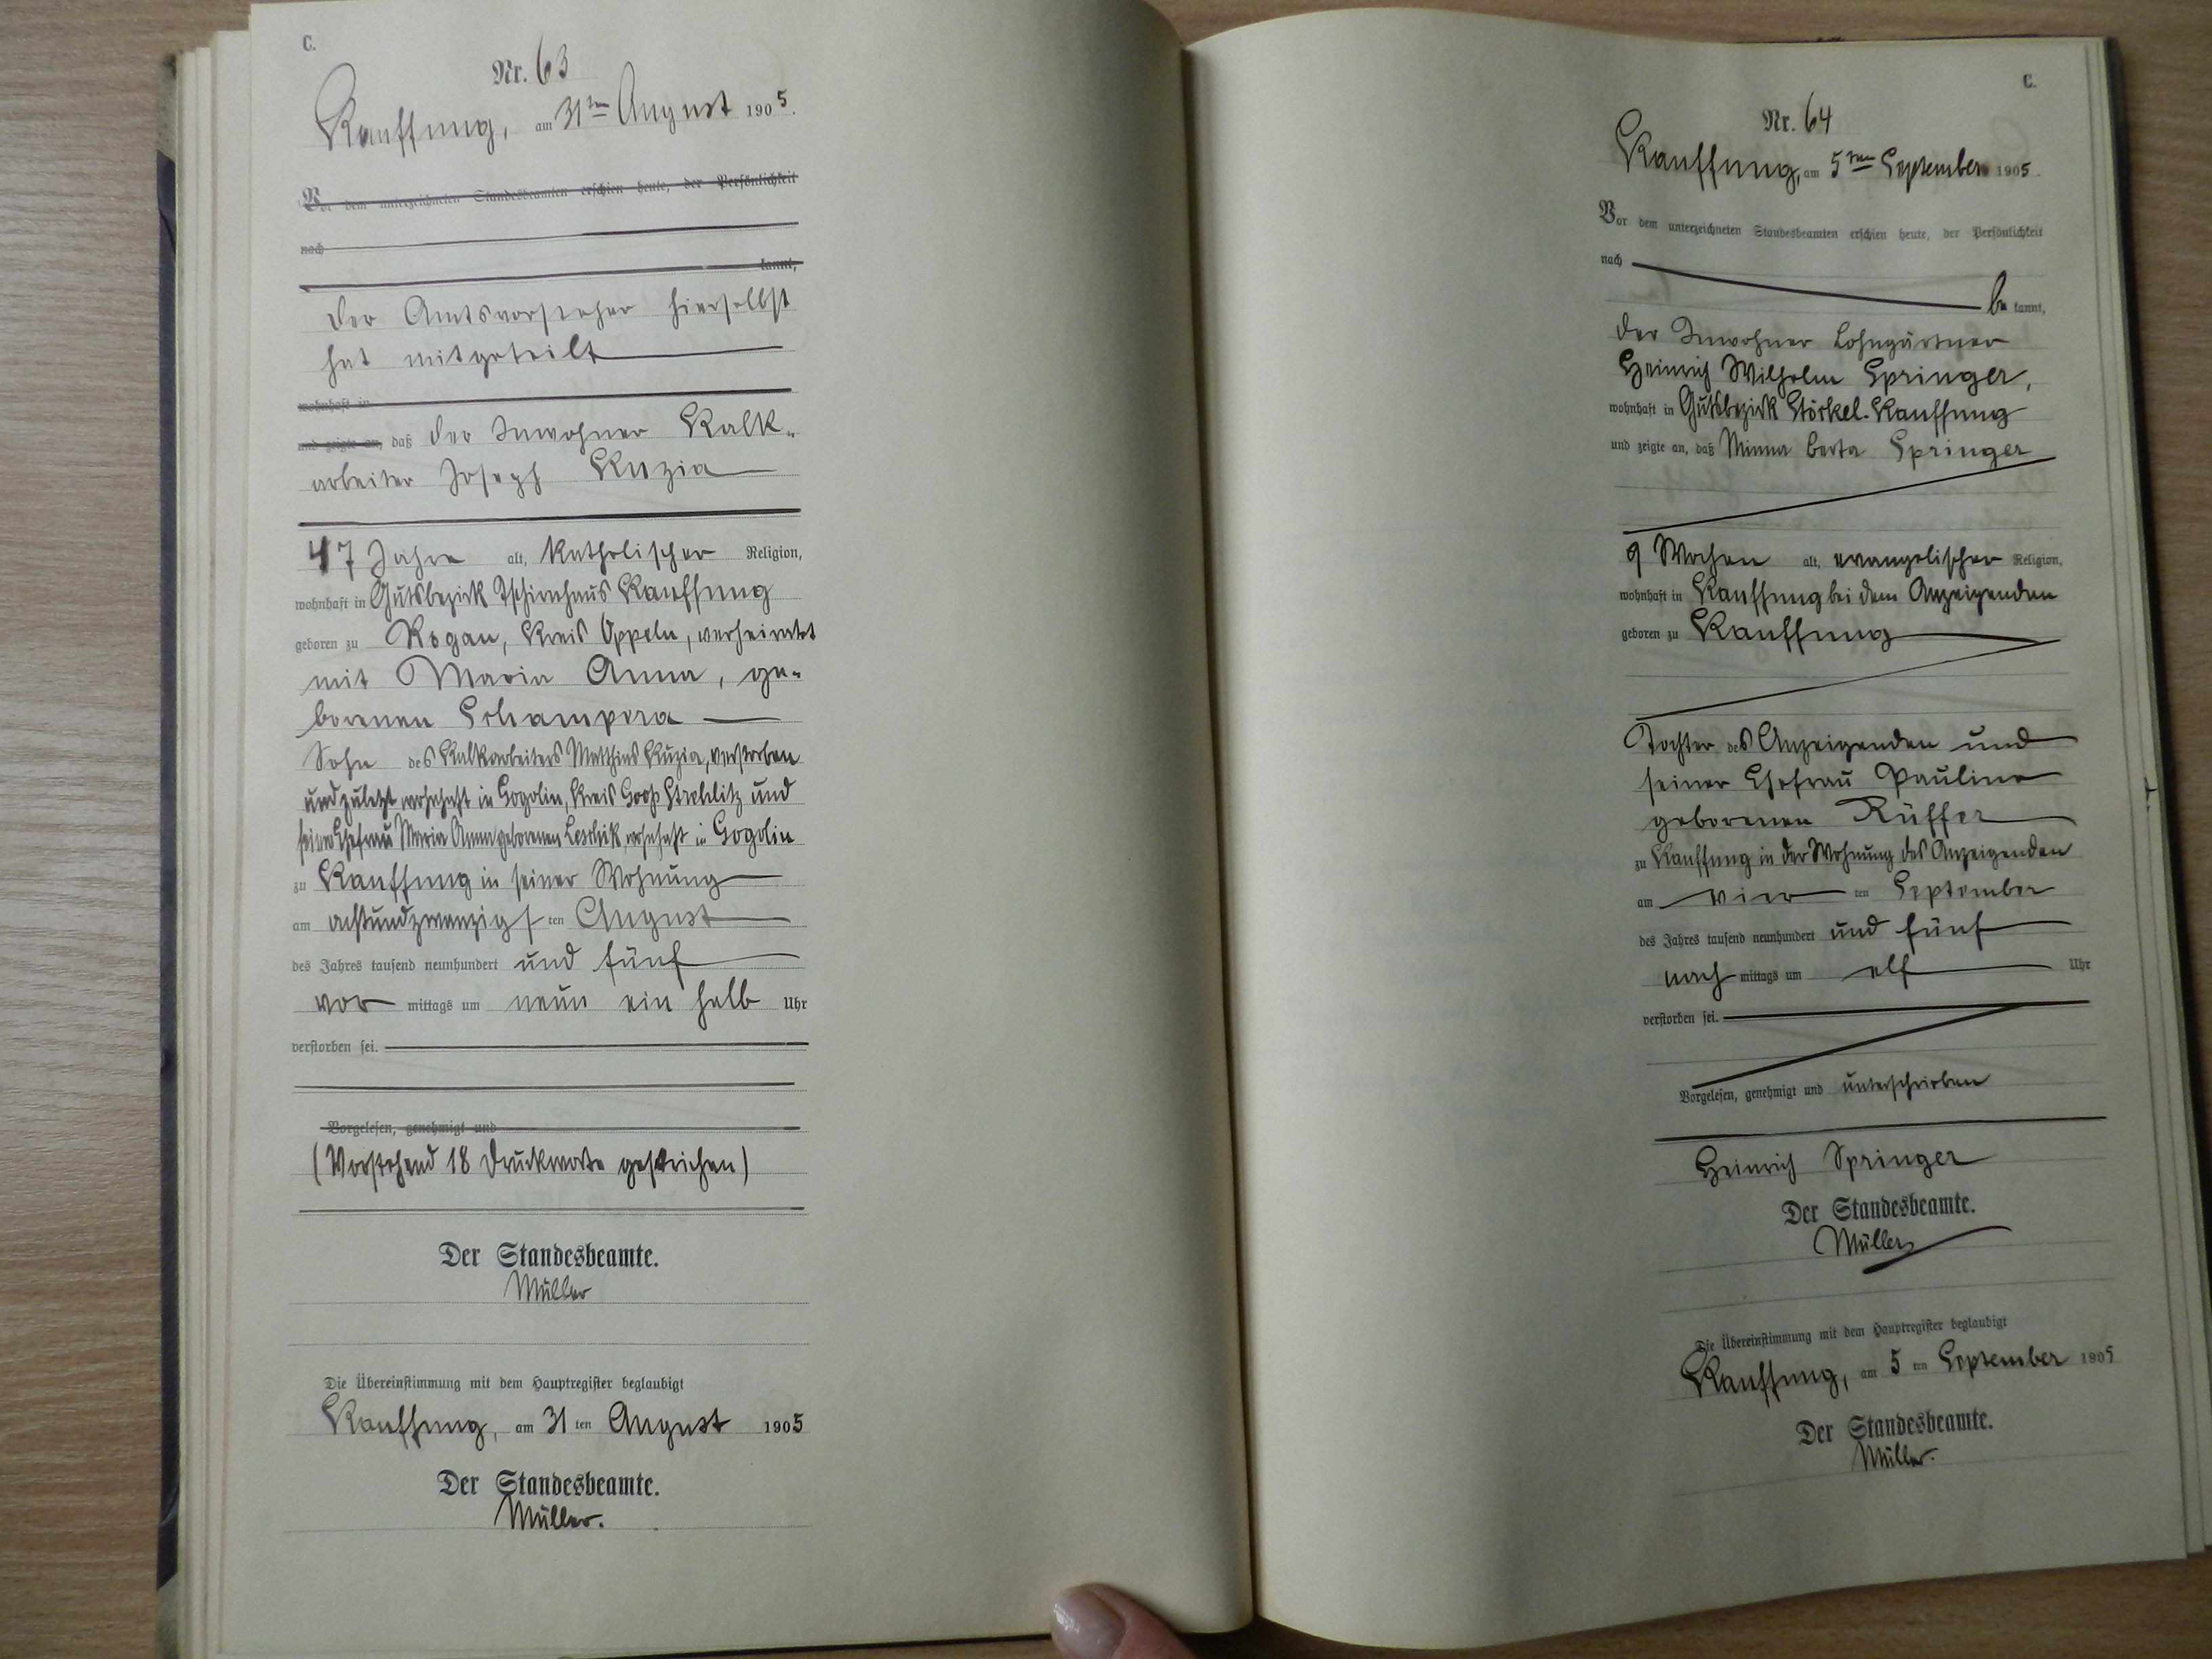 C.
Nr. 63
Kauffung, am 31ten August 1905.
Vor dem unterzeichneten Standesbeamten erschien heute, der Persönlichkeit
nach
kannt,
Der Amtsvorsteher hierselbst
hat mitgeteilt
wohnhaft in
und zeigte an, daß der Inwohner Kalk-
arbeiter Joseph Kuzia
47 Jahre alt, katholischer Religion,
wohnhaft in Gutsbezirk Tschirnhaus Kauffung
geboren zu Rogau, Kreis Oppeln, verheiratet
mit Maria Anna, ge-
borenen Schampera
Sohn des Kalkarbeiters Matthias Kuzia, verstorben
und zuletzt wohnhaft in Gogolin, Kreis Groß Strehlitz und
seiner Ehefrau Maria Anna geborenen Leschik, wohnhaft in Gogolin
zu Kauffung in seiner Wohnung
am achtundzwanzigsten August
des Jahres tausend neunhundert und fünf
vor mittags um neun ein halb Uhr
verstorben sei.
Vorgelesen, genehmigt und
(Vorstehend 18 Druckworte gestrichen)
Der Standesbeamte.
Müller
Die Übereinstimmung mit dem Hauptregister beglaubigt
Kauffung, am 31 ten August 1905
Der Standesbeamte.
Müller.
C.
Nr. 64
Kauffung, am 5ten September 1905.
Vor dem unterzeichneten Standesbeamten erschien heute, der Persönlichkeit
nach
be kannt,
der Inwohner Lohngärtner
Heinrich Wilhelm Springer,
wohnhaft in Gutsbezirk Stöckel-Kauffung
und zeigte an, daß Minna Berta Springer
9 Wochen alt, evangelischer Religion,
wohnhaft in Kauffung bei dem Anzeigenden
geboren zu Kauffung
Tochter des Anzeigenden und
seiner Ehefrau Pauline
geborenen Rüffer
zu Kauffung in der Wohnung des Anzeigenden
am vier ten September
des Jahres tausend neunhundert und fünf
nach mittags um elf Uhr
verstorben sei.
Vorgelesen, genehmigt und unterschrieben
Heinrich Springer
Der Standesbeamte.
Müller
Die Übereinstimmung mit dem Hauptregister beglaubigt
Kauffung, am 5 ten September 1905
Der Standesbeamte.
Müller.